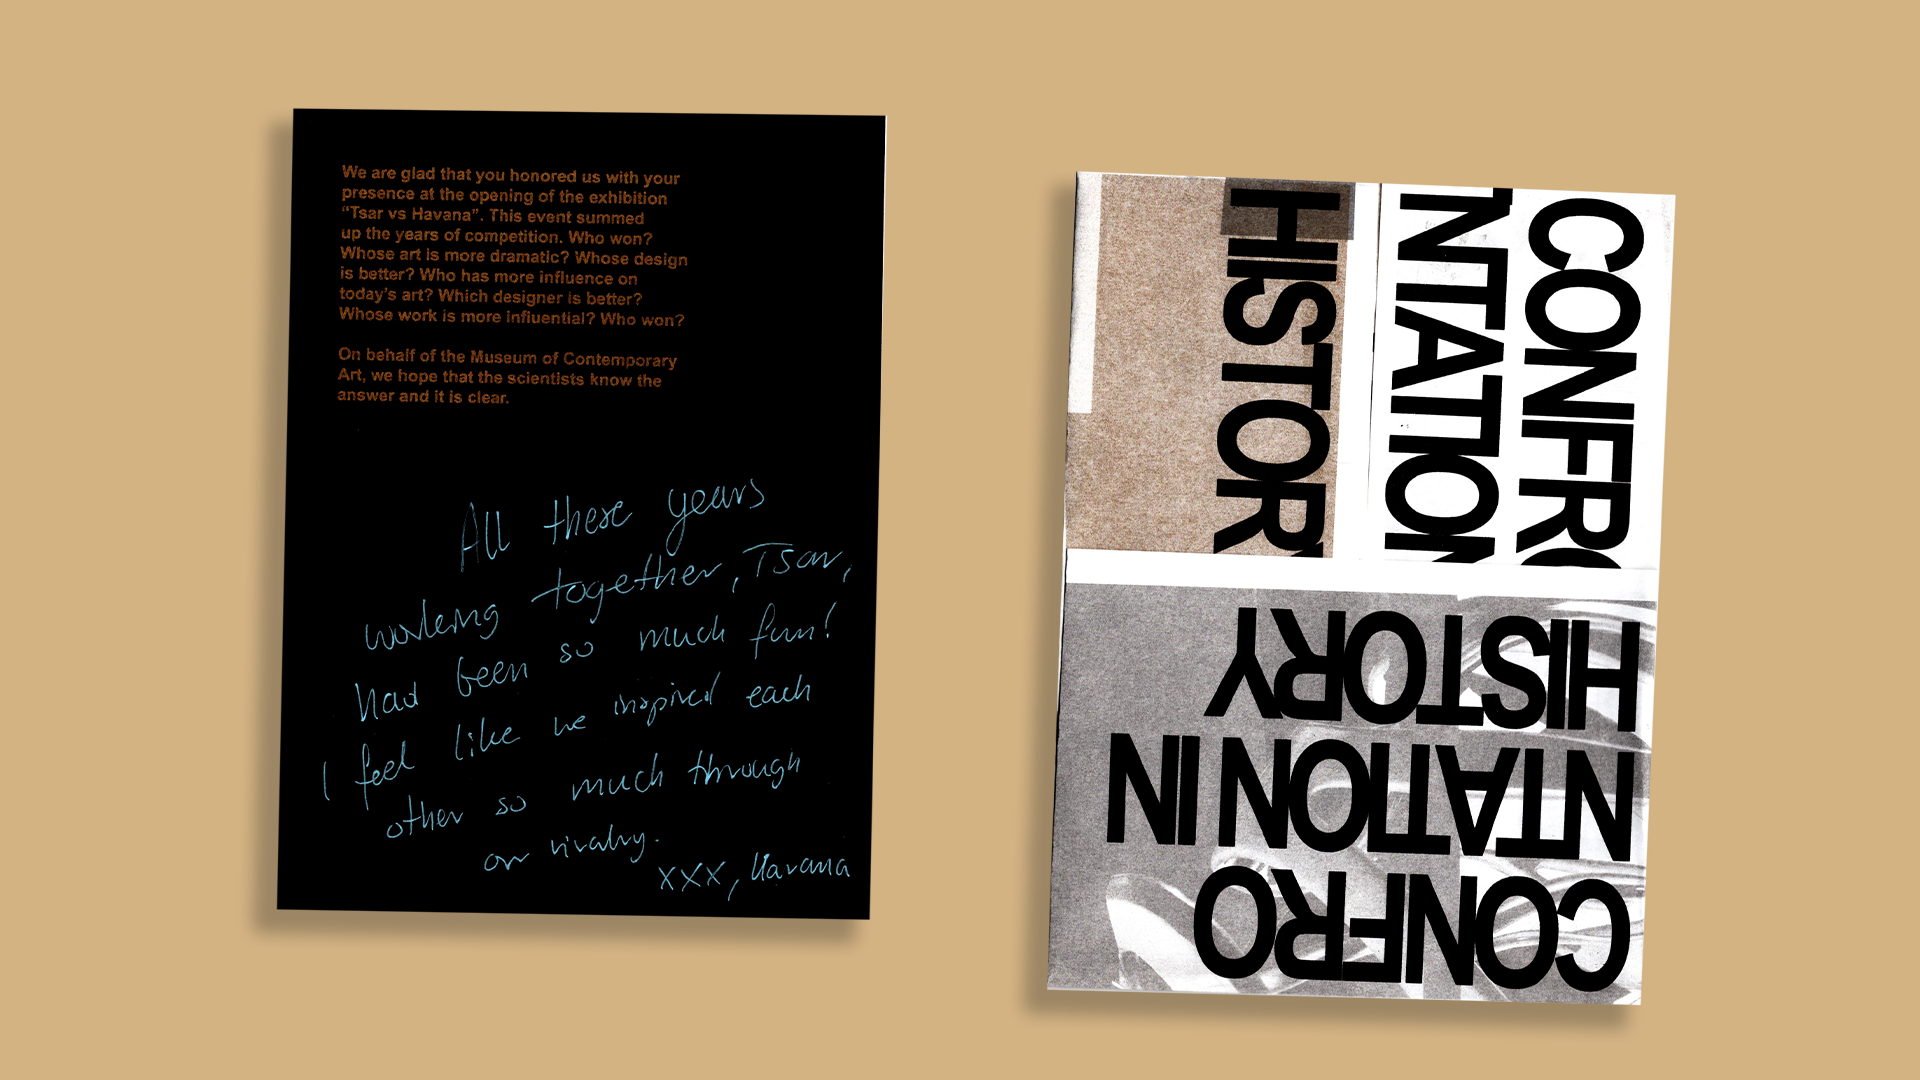 We are glad that you honored us with your
presence at the opening of the exhibition
“Tsar vs Havana”. This event summed
up the years of competition. Who won?
Whose art is more dramatic? Whose design
is better? Who has more influence on
today's art? Which designer is better?
Whose work is more influential? Who won?
On behalf of the Museum of Contemporary
Art, we hope that the scientists know the
answer and it is clear.
All these years
working together, Tsar,
had been so much fun!
I feel like we inspired each
other so much through
our rivalry.
xxx, Havana
CONFRO
NTATION
HISTORY
CONFRO
NTATION IN
HISTORY